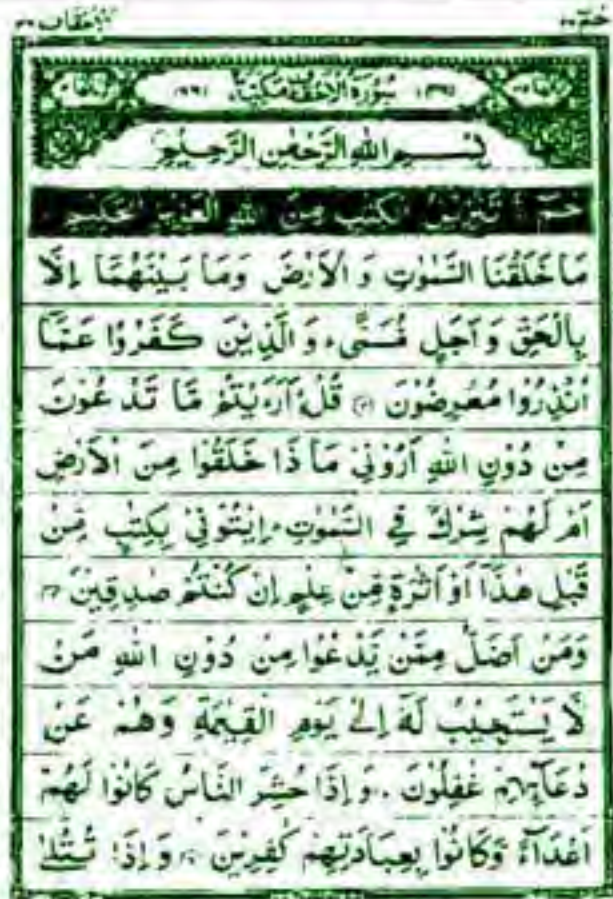 حٰمٓ ٢٦
الاحقاف ٤٦
سُوۡرَةُ الۡاَحۡقَافِ مَكِّيَّةٌ
بِسۡمِ اللهِ الرَّحۡمٰنِ الرَّحِيۡمِ
حٰمٓ تَنۡزِيۡلُ الۡكِتٰبِ مِنَ اللهِ الۡعَزِيۡزِ الۡحَكِيۡمِ
مَا خَلَقۡنَا السَّمٰوٰتِ وَ الۡاَرۡضَ وَمَا بَيۡنَهُمَا اِلَّا
بِالۡحَقِّ وَ اَجَلٍ مُّسَمًّى وَ الَّذِيۡنَ كَفَرُوۡا عَمَّاۤ
اُنۡذِرُوۡا مُعۡرِضُوۡنَ قُلۡ اَرَءَيۡتُمۡ مَّا تَدۡعُوۡنَ
مِنۡ دُوۡنِ اللهِ اَرُوۡنِيۡ مَاذَا خَلَقُوۡا مِنَ الۡاَرۡضِ
اَمۡ لَهُمۡ شِرۡكٌ فِي السَّمٰوٰتِ اِيۡتُوۡنِيۡ بِكِتٰبٍ مِّنۡ
قَبۡلِ هٰذَاۤ اَوۡ اَثٰرَةٍ مِّنۡ عِلۡمٍ اِنۡ كُنۡتُمۡ صٰدِقِيۡنَ
وَمَنۡ اَضَلُّ مِمَّنۡ يَّدۡعُوۡا مِنۡ دُوۡنِ اللهِ مَنۡ
لَّا يَسۡتَجِيۡبُ لَهٗۤ اِلٰى يَوۡمِ الۡقِيٰمَةِ وَهُمۡ عَنۡ
دُعَآئِهِمۡ غٰفِلُوۡنَ وَ اِذَا حُشِرَ النَّاسُ كَانُوۡا لَهُمۡ
اَعۡدَآءً وَّكَانُوۡا بِعِبَادَتِهِمۡ كٰفِرِيۡنَ وَ اِذَا تُتۡلٰى